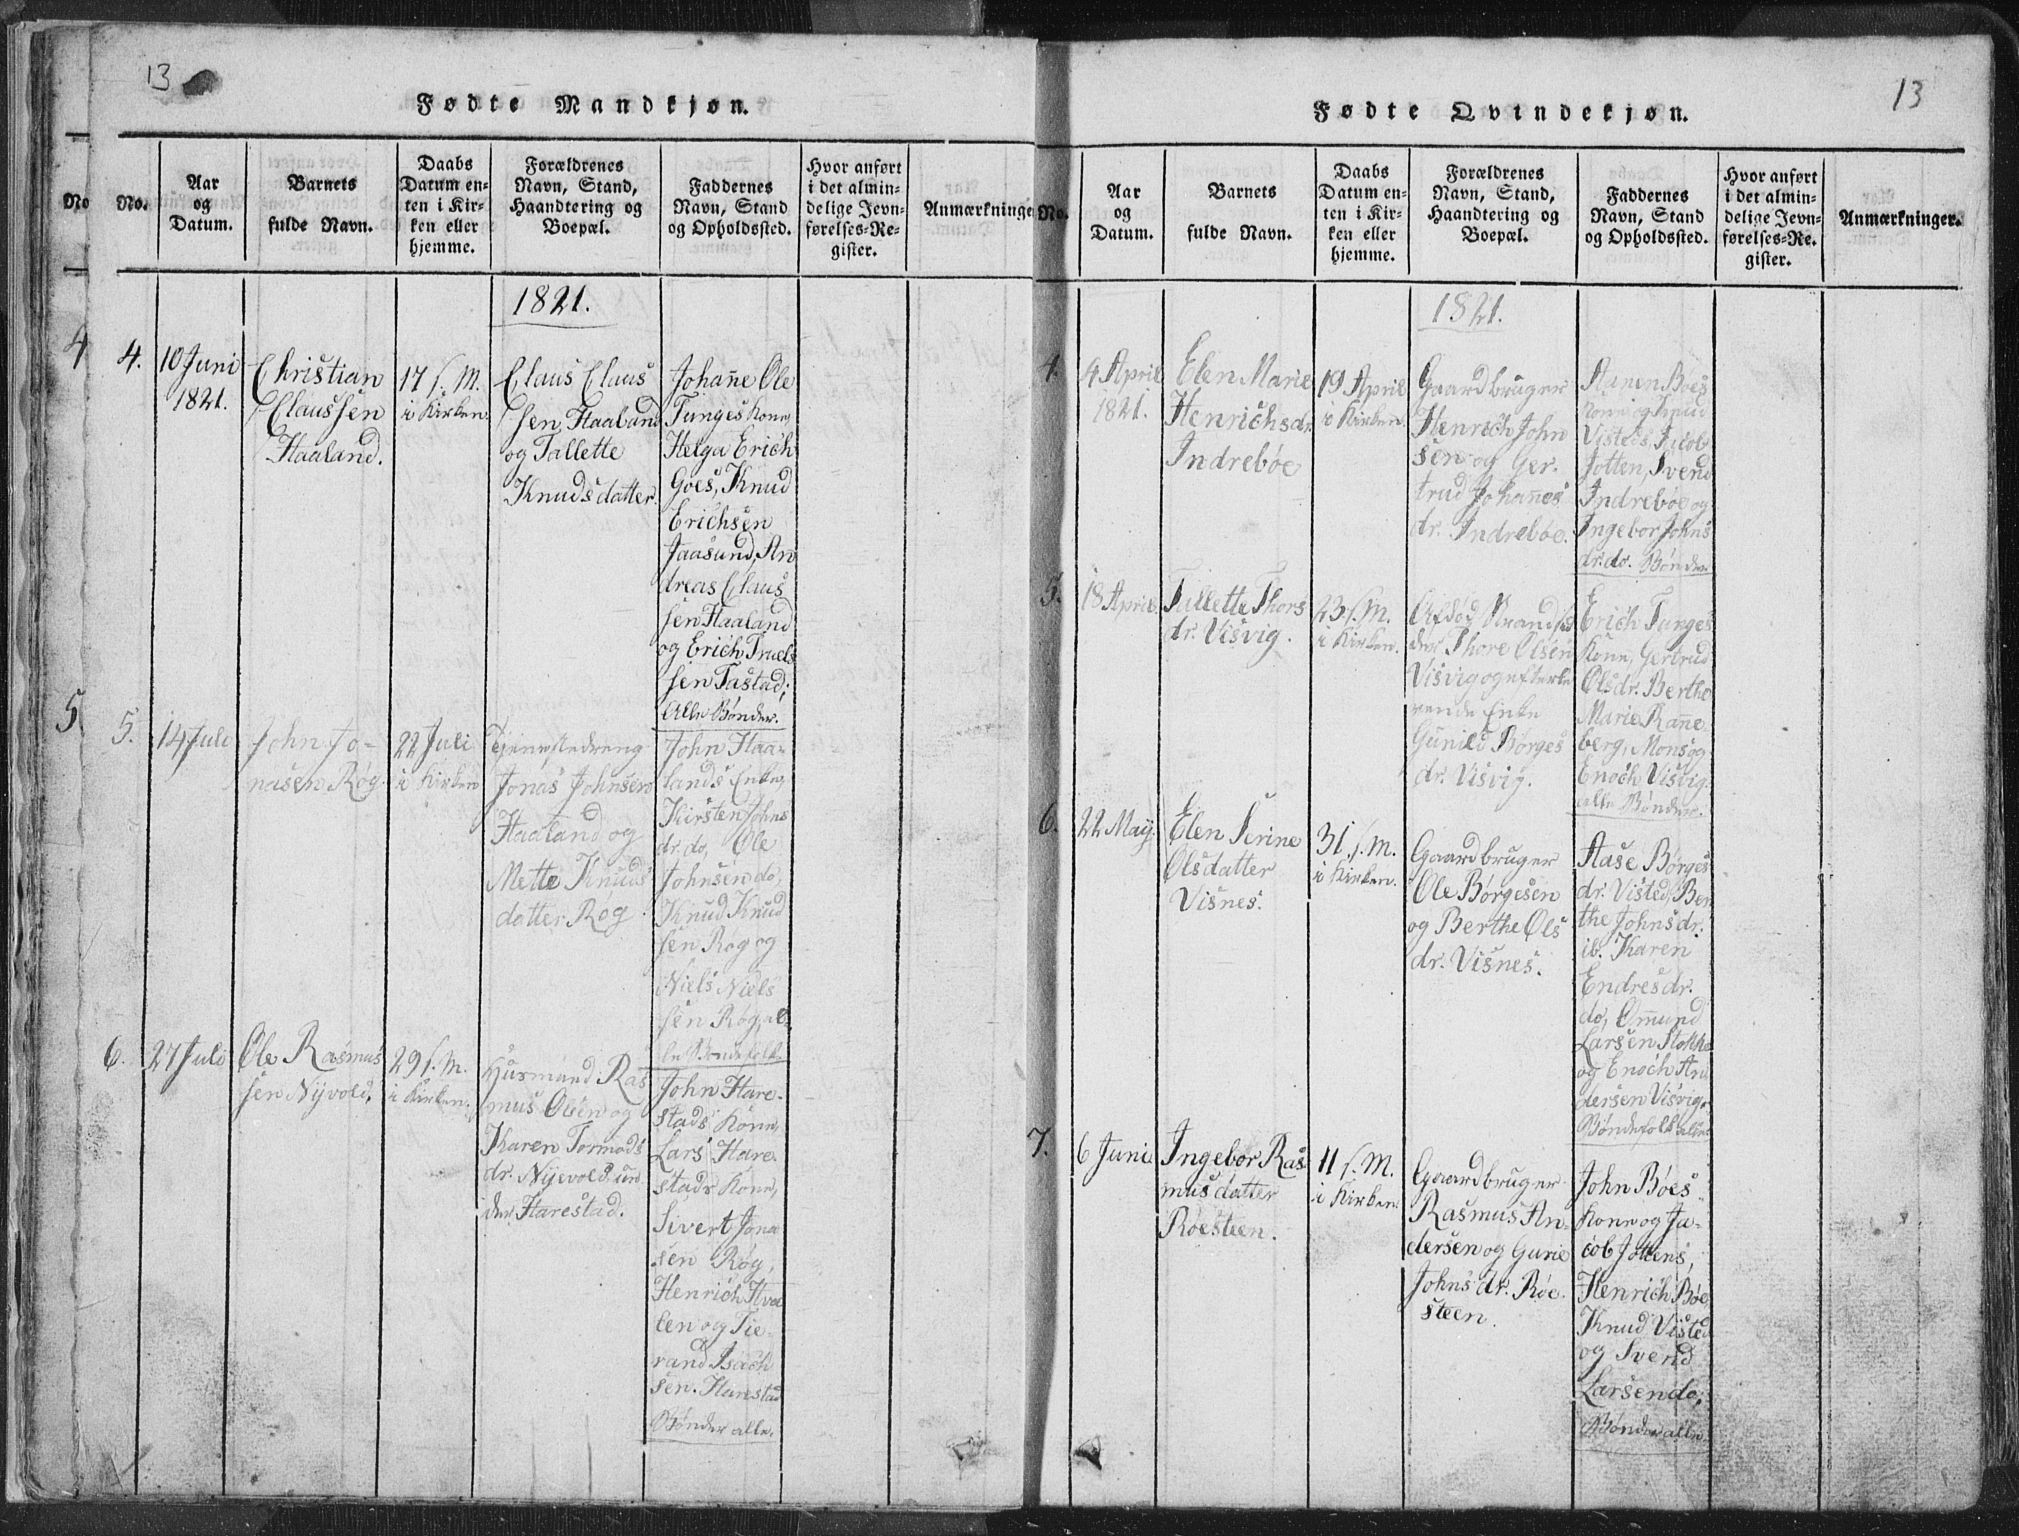 13
Fødte Mandkjøn.
No.
Aar
og
Datum.
Barnets
fulde Navn.
Daabs
Datum en-
ten i Kir-
ken eller
hjemme.
Forældrenes
Navn, Stand,
Haandtering og
Boepæl.
Faddernes
Navn, Stand
og Opholdssted.
Hvor anført
i det almin-
delige Jevn-
førelses-Re-
gister.
Anmærkninge
No
4
5
1821.
4.
10 Juni
1821.
Christian
Claussen
Haaland.
17 s. M.
i Kirken.
Claus Claus
sen Haaland
og Tallette
Knudsdatter.
Johan̄e Ole
Tunges Kone,
Helga Erich
Goes, Knud
Erichsen
Jaasund, An
dreas Claus
sen Haaland
og Erich Truels
sen Tastad;
Alle Bønder.
5.
14 Juli
John Jo-
nasen Røg.
22 Juli
i Kirken
Tjenestedreng
Jonas Johnsen
Haaland og
Mette Knuds
datter Røg
John Haa-
lands Enke,
Kirsten Johns
dr. do, Ole
Johnsen do,
Knud Knud
sen Røg og
Niels Niels
sen Røg, al-
le Bondefolk.
6.
27 Juli
Ole Rasmus
sen Nyvold.
29 s. M.
i Kirken.
Husmand Ras
mus Olsen og
Karen Tormods
dr. Nyevold un
der Harestad.
John Hare-
stads Kone,
Lars Hare-
stads Kone,
Sivert Jona
sen Røg,
Henrich
len og Tie-
rand Isach
sen Harestad
Bønder alle.
13
Fødte Qvindekjøn.
No.
Aar
og
Datum.
Barnets
fulde Navn.
Daabs
Datum en-
ten i Kir-
ken eller
hjemme.
Forældrenes
Navn, Stand,
Haandtering og
Boepæl.
Faddernes
Navn, Stand
og Opholdssted.
Hvor anført
i det almin-
delige Jevn-
førelses-Re-
gister.
Anmærkninger.
1821.
4.
4 April
1821.
Elen Marie
Henrichsdr.
Indrebøe
19 April
i Kirken.
Gaardbruger
Henrich John
sen og Ger-
trud Johan̄es
dr. Indrebøe.
Boes
Kone og Knud
Visteds, Jacob
Jotten, Svend
Indrebøe og
Ingebor Johns
dr. do. Bønder
5.
18 April
Tallette Thors
dr. Visvig.
23 s. M.
i Kirken.
Afdød Strandsid
der Thore Olsen
Visvig og efterle
vende Enke
Gunild Børges
dr. Visvig.
Erich Tunges
Kone, Gertrud
Olsdr. Berthe
Marie Ran̄e
berg, Mons og
Enoch Visvig.
alle Bønder.
6.
22 May
Elen Serine
Olsdatter
Visnes.
31 s. M.
i Kirken.
Gaardbruger
Ole Børgesen
og Berthe Ols
dr. Visnes.
Aase Børges
dr. Visted, Ber
the Johnsdr.
ib. Karen
Endresdr.
do, Om̄und
Larsen Stokke
og Enoch An
dersen Visvig.
Bøndefolk alle.
7.
6 Juni
Ingebor Ras
musdatter
Røesteen.
11 s. M.
i Kirken.
Gaardbruger
Rasmus An-
dersen og Gurie
Johnsdr. Røe-
steen.
John Bøes
Kone og Ja-
cob Jottens,
Henrich Bøe
Knud Visted
og Svend
Larsen do,
Bønder alle.